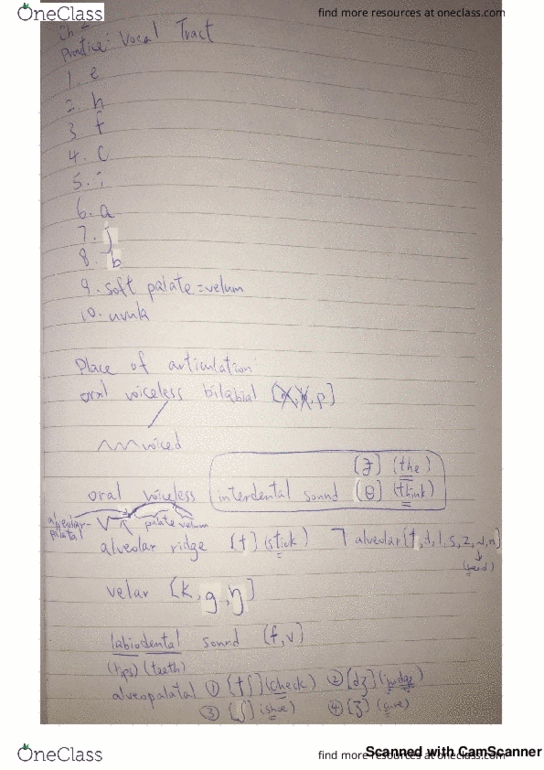 OneClass
find more resources at oneclass.com
Ch
Practice: Vocal Tract
1. e
2. h
3. f
4. C
5. i
6. a
7. j
8. b
9. soft palate = velum
10. uvula
Place of articulation:
oral voiceless bilabial [ , , p]
voiced
[ʒ] (the)
oral voiceless interdental sound [θ] (think)
alveolar- palate velum
palatal
alveolar ridge [t] (stick) alveolar [t, d, l, s, z, ɹ, n]
velar [k, g, ŋ]
labiodental sound (f, v)
(lips) (teeth)
alveopalatal ① [tʃ] (check) ② [dʒ] (judge)
③ [ʃ] (shoe) ④ [ʒ]
Scanned with CamScanner
OneClass
find more resources at oneclass.com